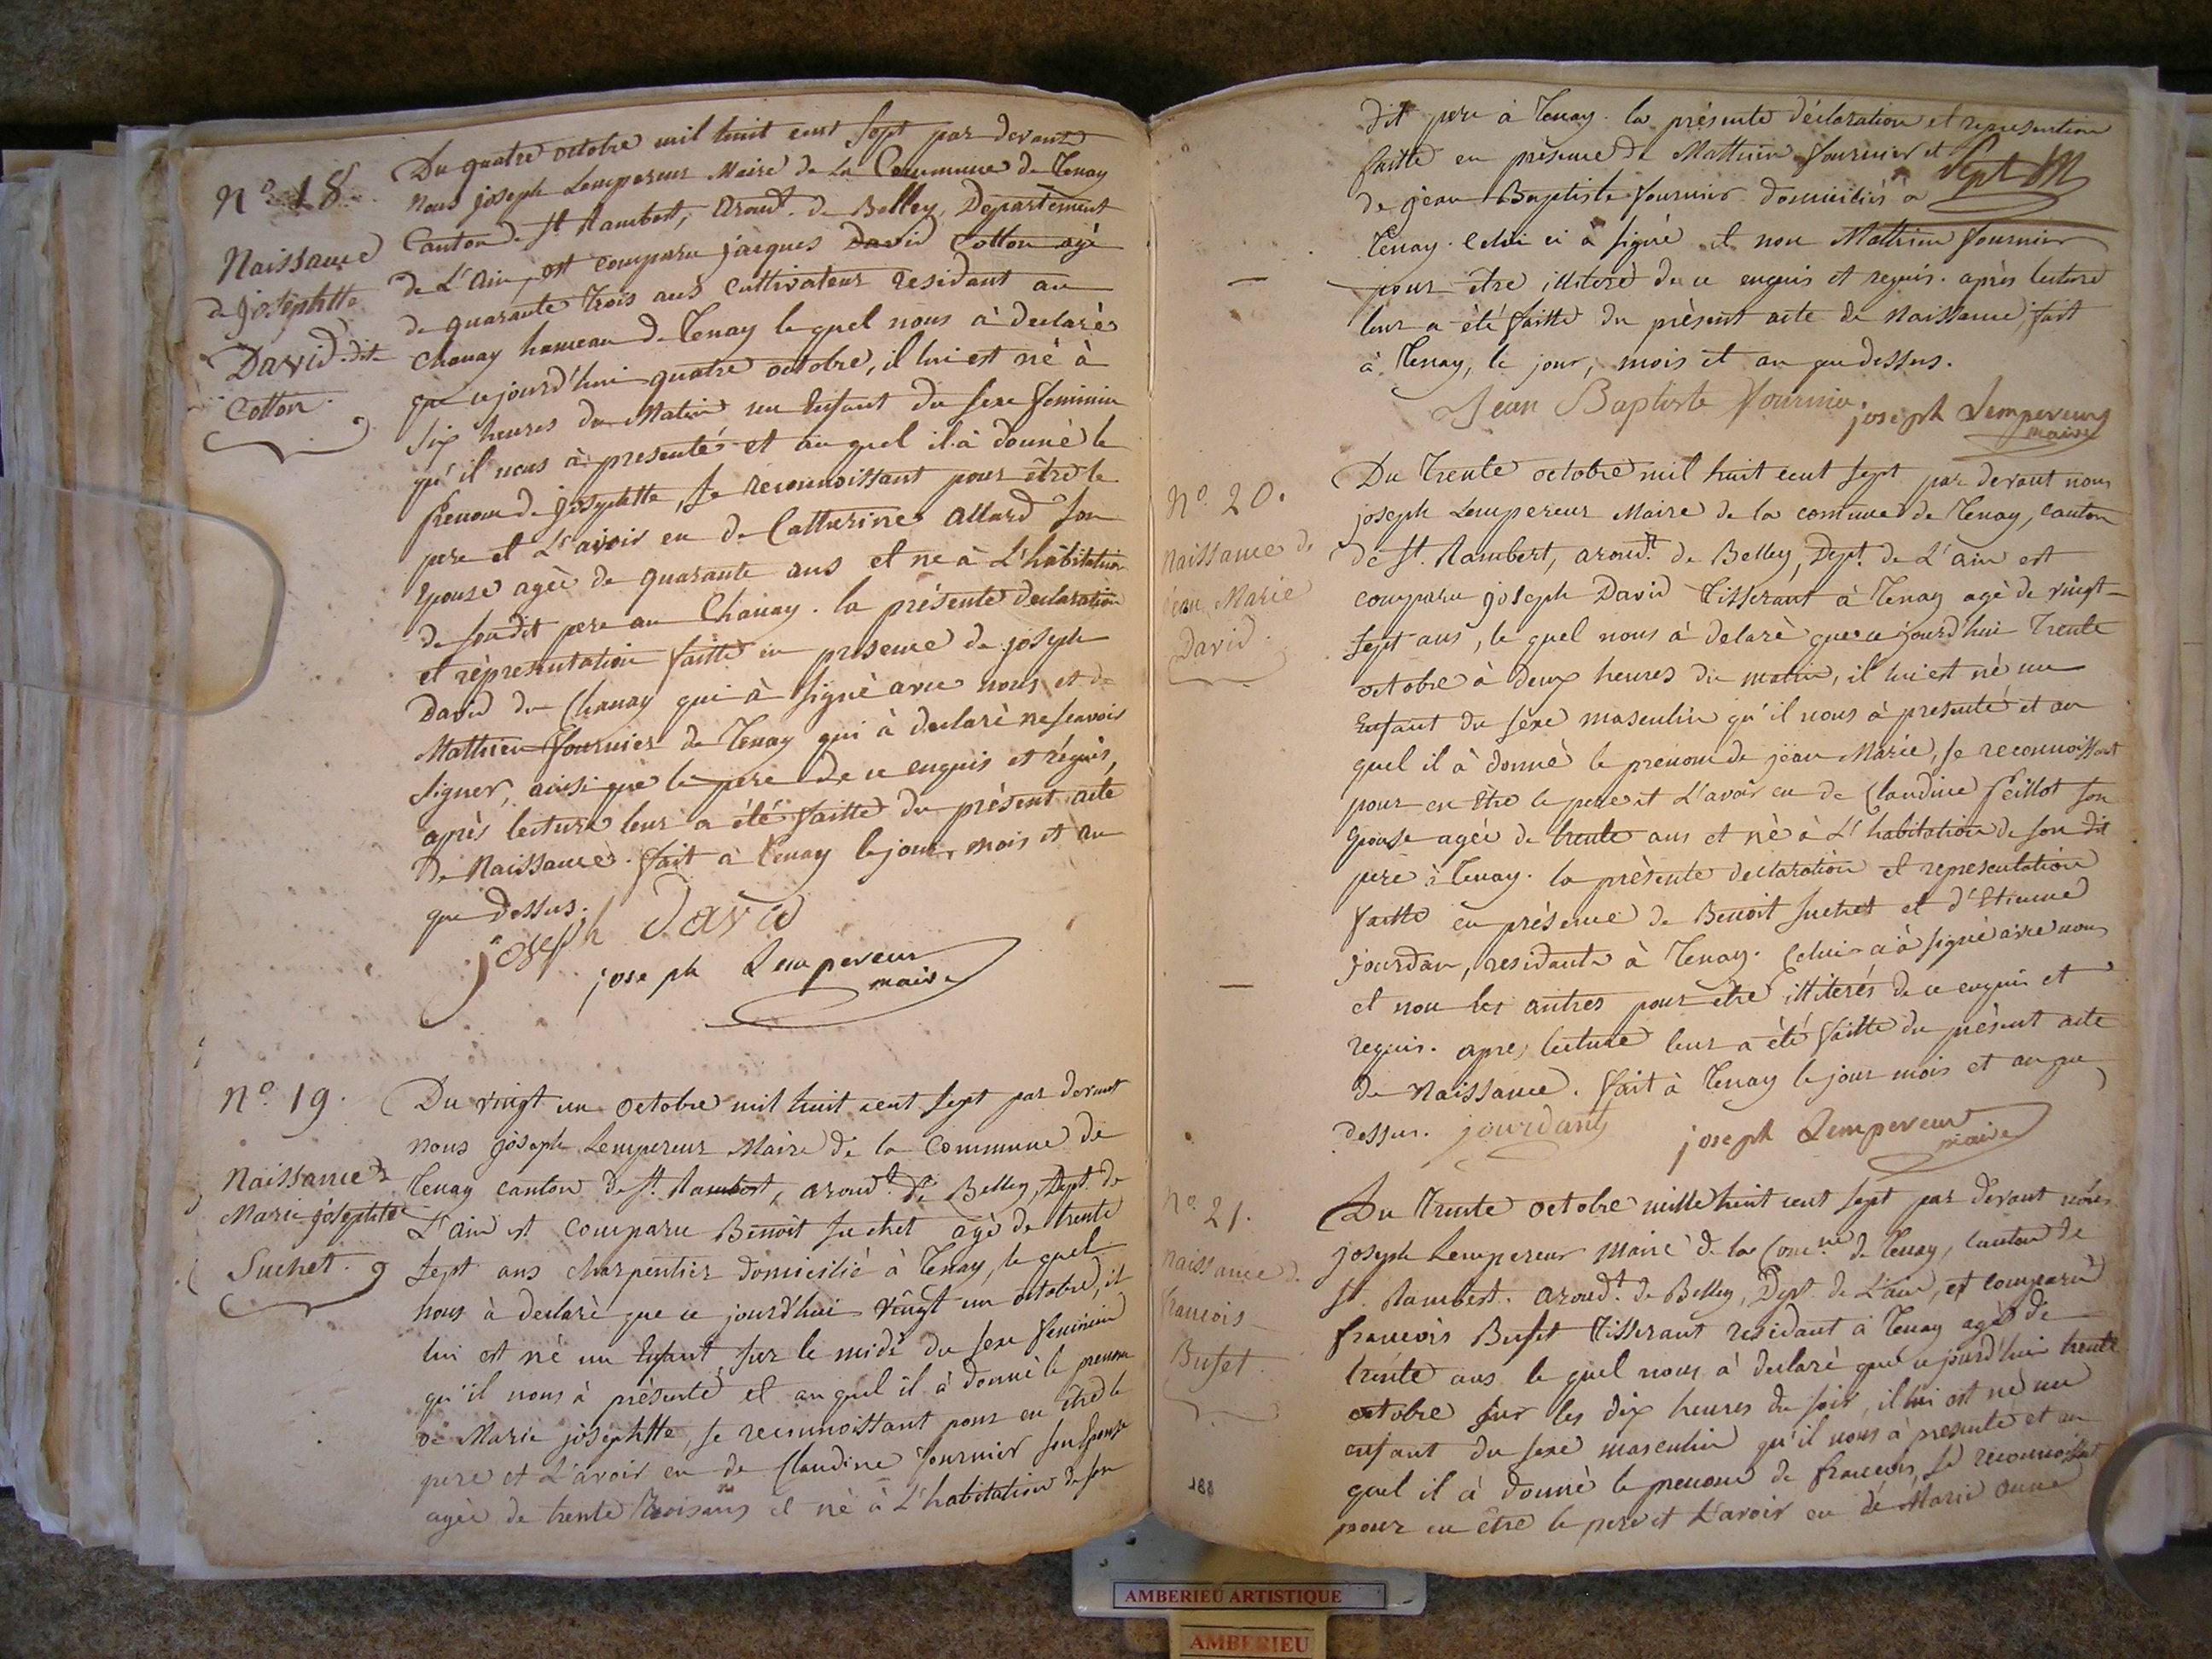 N.o 18.
Naissance
de Josephtte
David dit
Cotton.
Du quatre octobre mil huit cent Sept par devant
Nous joseph Lempereur Maire de La Commune de Tenay
Canton de St. Rambert, arond.t de Belley, Departement
de L'ain, est comparu jacques David Cotton agé
de quarante trois ans cultivateur residant au
Chanay hameau de Tenay le quel nous à declarè
que ce jourd'hui quatre octobre, il lui est né à
Six heures du Matin un Enfant du sexe feminin
qu'il nous à presenté et au quel il à donné le
prenom de josephtte, se reconnoissant pour être le
pere et L'avoir eu de Catherine Allard son
Epouse agée de quarante ans et ne à L'habitation
de son dit pere au Chanay. la présente declaration
et réprésentation faitte en présence de joseph
David du Chanay qui à signé avec nous et de
Mathieu Fournier de Tenay qui à declaré ne scavoir
signer, ainsi que le pere de ce enquis et réquis,
après lecture leur a été faitte du présent acte
de Naissance. fait à Tenay le jour, mois et an
que dessus.
joseph David
joseph Lempereur
maire
N.o 19.
Naissance de
Marie josephte
Suchet.
Du vingt un octobre mil huit cent sept par devant
nous joseph Lempereur Maire de la Commune de
Tenay canton de St. Rambert, arond.t de Belley, Dept. de
L'ain est comparu Benoit Suchet agé de trente
sept ans charpentier domicilié à Tenay, le quel
nous à declaré que ce jourd'hui vingt un octobre, il
lui est né un Enfant, sur le midi du sexe feminin
qu'il nous à présenté et au quel il à donné le prenom
de Marie josephtte, se reconnoissant pour en être le
pere et L'avoir eu de Claudine Fournier son Epouse
agée de trente trois ans et né à L'habitation de son
dit pere à Tenay. la présente déclaration et représention
faitte en présence de Mathieu Fournier et
de jean Baptiste Fournier domiciliés à
Tenay. Celui ci à signé et non Mathieu Fournier
pour être illiteré de ce enquis et requis. après lecture
leur a été faitte du présent acte de Naissance, fait
à Tenay, le jour, mois et an que dessus.
Jean Baptiste Fournier
joseph Lempereur
maire
N.o 20.
Naissance de
jean Marie
David.
Du trente octobre mil huit cent sept par devant nous
joseph Lempereur Maire de la comune de Tenay, canton
de St. Rambert, arond.t de Belley, Dept. de L'ain est
comparu joseph David Tisserant à Tenay agè de vingt-
sept ans, le quel nous à delaré que ce jourd'hui trente
octobre à deux heures du matin, il lui est né un
Enfant du sexe masculin qu'il nous à presenté et au
quel il à donné le prenom de jean Marie, se reconnoissant
pour en être le pere et L'avoir eu de Claudine Peillot son
epouse agée de trente ans et né à L'habitation de son dit
pere à Tenay. la présente declaration et representation
faitte en présence de Benoit Suchet et d'Etienne
jourdan, residants à Tenay. Celui-ci à signé avec nous
et non les autres pour être illiterés de ce enquis et
requis. apres lecture leur a été faitte du présent acte
de Naissance. fait à Tenay le jour mois et an que
dessus. jourdant
joseph Lempereur
maire
N.o 21.
Naissance de
francois
Bufet
Du trente octobre mille huit cent sept par devant nous
joseph Lempereur Maire de la Com.ne de Tenay, canton de
St. Rambert. arond.t de Belley, Dept. de L'ain, est comparu
francois Bufet Tisserant residant à Tenay agé de
trente ans le quel nous à declaré que ce jourd'hui trente
octobre sur les dix heures du soir, il lui est né un
enfant du sexe masculin qu'il nous à presenté et au
quel il à donné le prenom de francois, se reconnoissant
pour en être le pere et L'avoir eu de Marie anne
188
AMBERIEU ARTISTIQUE
AMBERIEU